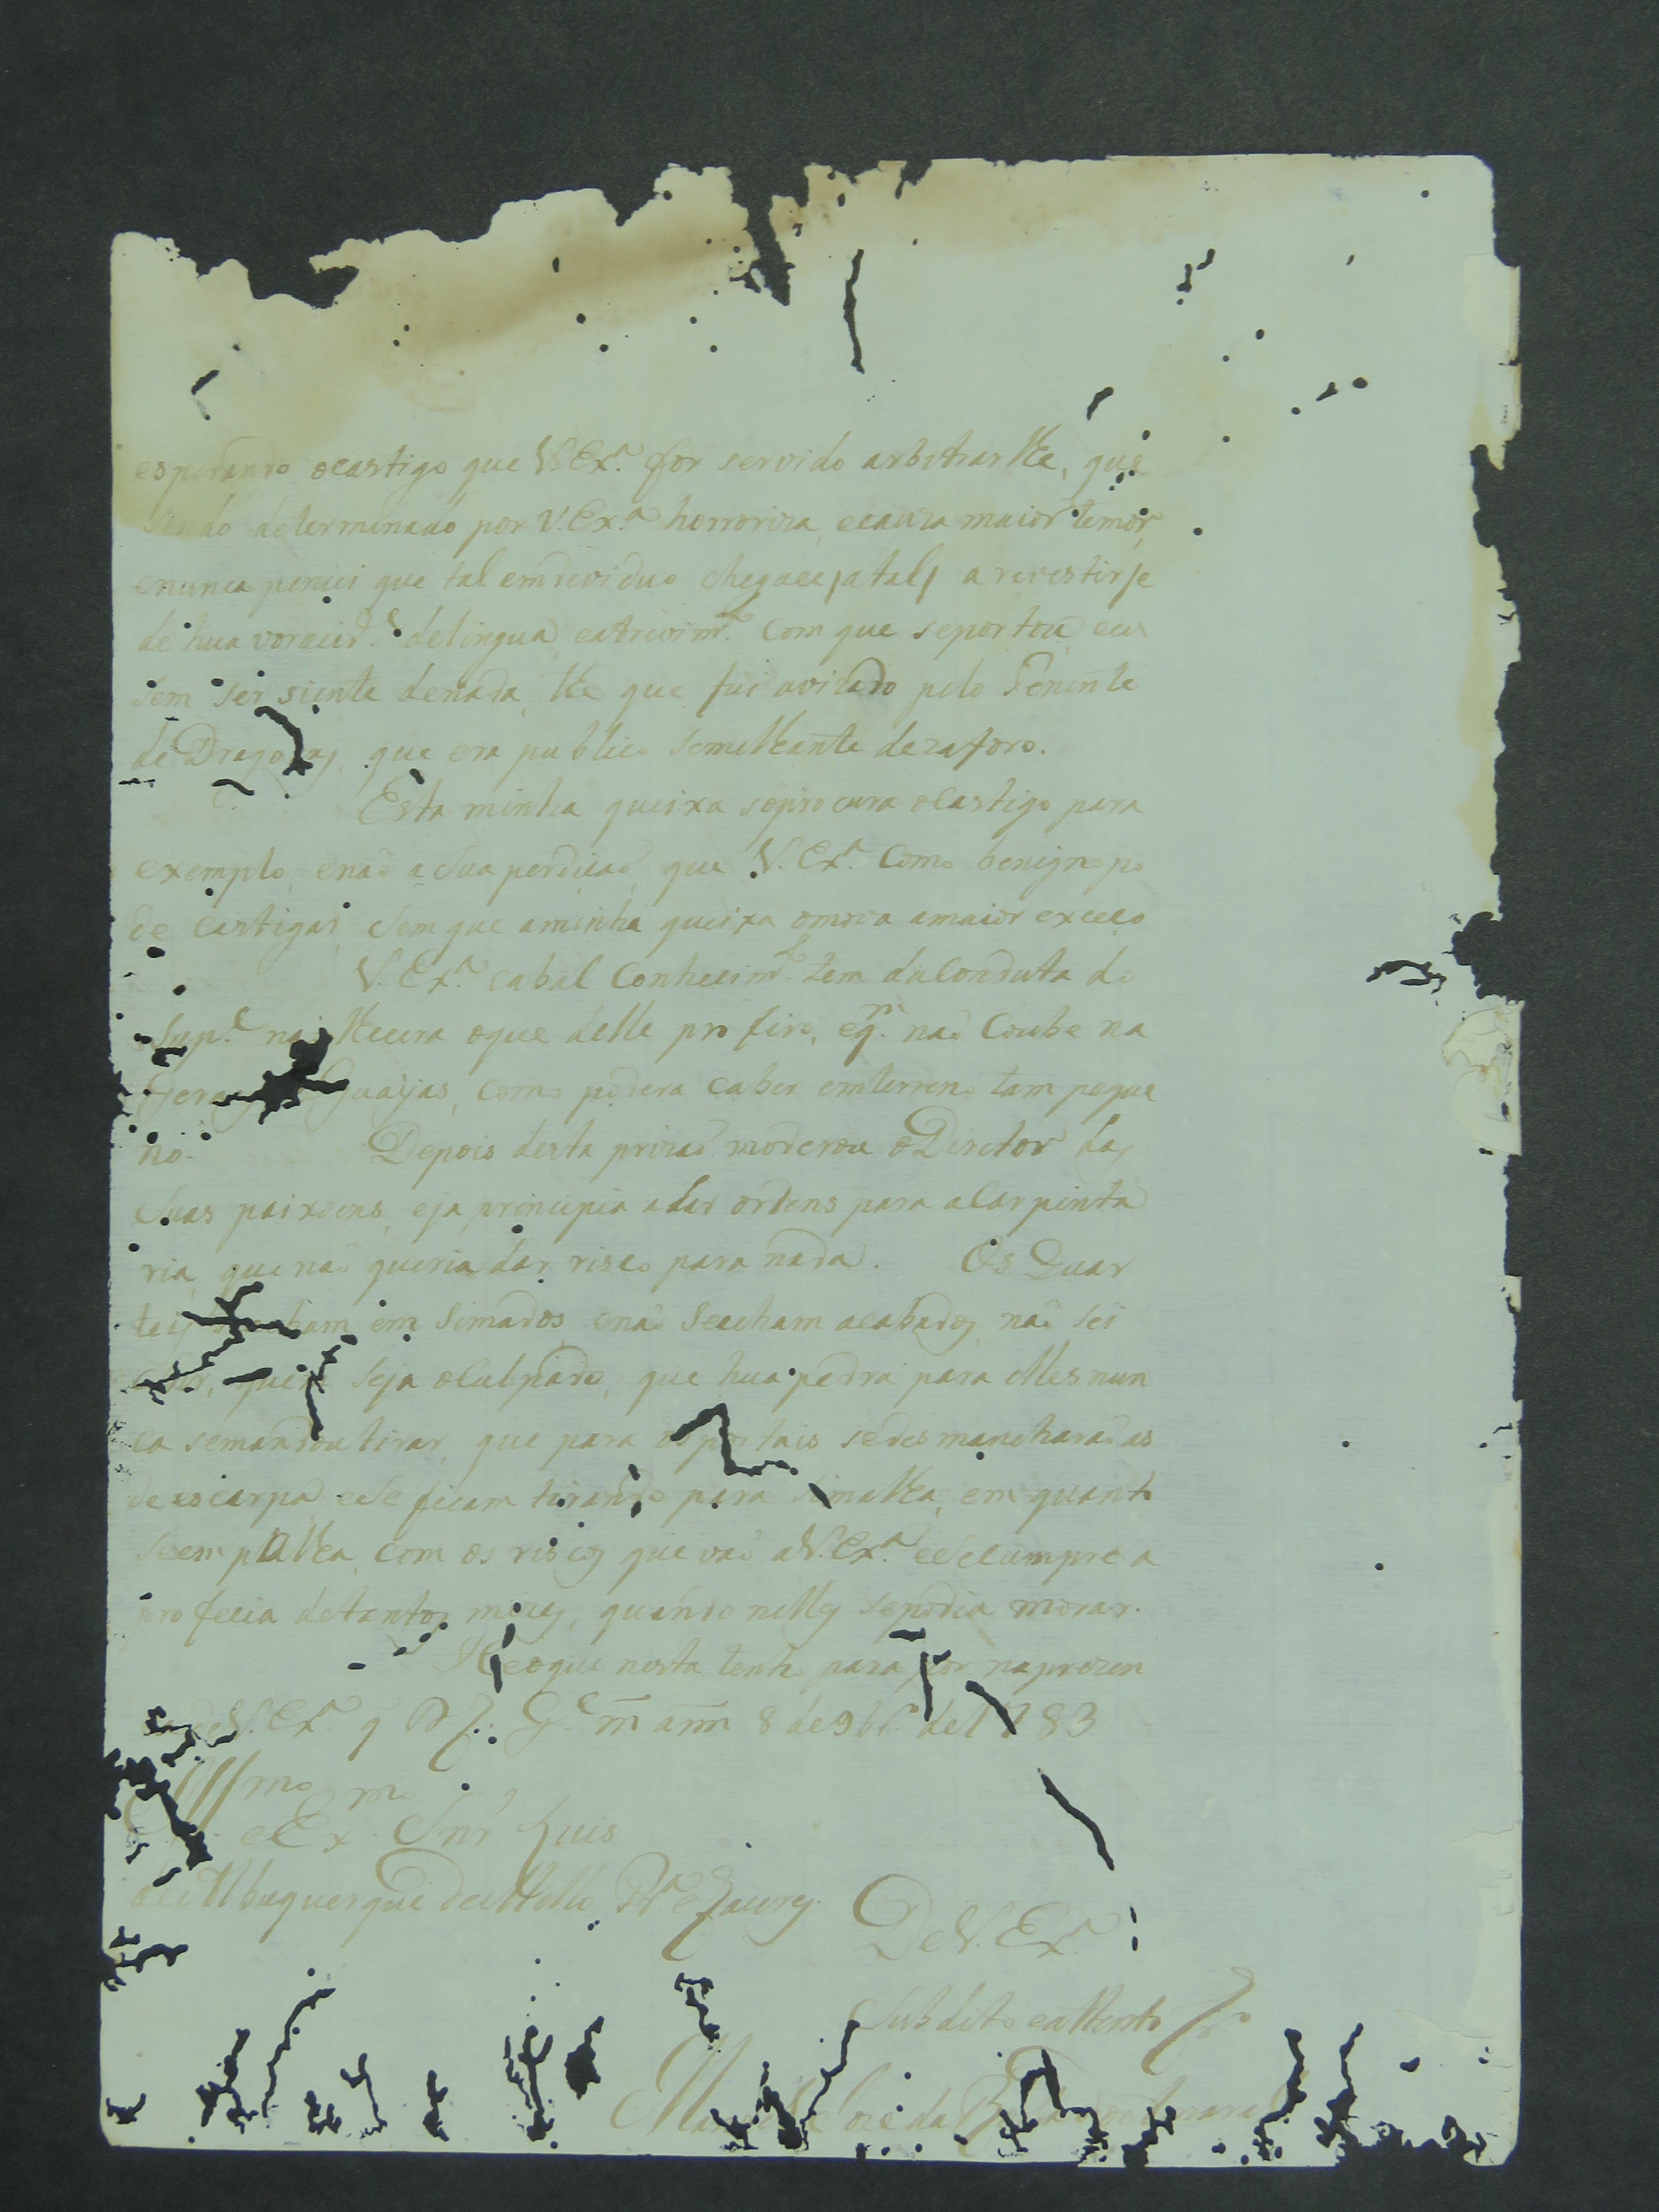 esperando ocastigo que V.Ex.ª for servido arbitrarlhe, que
sendo determinado por V.Ex.ª horroriza, ecauza maior temor,
enunca pencei que tal emdeviduo chegace, atal, a revestirse
de hua voracid.e delingua, eatrevim.to Com que seportou, eeu
sem ser siente denada, the que fui avizado pelo Tenente
de Dragoens, que era publico semelhante dezaforo.
Esta minha queixa soprocura oCastigo para
exemplo, enaõ a Sua perdicaõ, que V.Ex.ª Como benigno po
de Castigar, Sem que aminha queixa omova amaior exceco
V.Ex.ª cabal Conhecim.to tem daConduta do
Sup.e naõ lhecera oque delle profiro, eq.m naõ Coube na
Guayas, como podera caber emterreno tam peque
no. Depois desta prizaõ moderou oDiretor das
Suas paixoens, eja principia adar ordens para aCarpinta
ria, que naõ queria dar risco para nada. Os Quar
teis em Simados, enaõ Seacham acabados, naõ sei
quem seja oCulpado, que hua pedra para elles nun
ca semandou tirar, que para os portais sedesmancharaõ as
de escarpa, eSe ficam tirando para Simalha, em quanto
Seempalha Com os riscos que vaõ aV.Ex.ª eSeCumpre a
profecia detantos mezes, quando nelles sepodia morar.
He oque nesta tenho para por naprezen
deV.Ex.ª q̃ D.s G.e m. ann. 8 de 9br.º de 1783
Ill.mo e Ex.mo Snr. Luis
de Albuquerque deMello Pr.ª eCaceres
DeV.Ex.ª
Subdito eattento